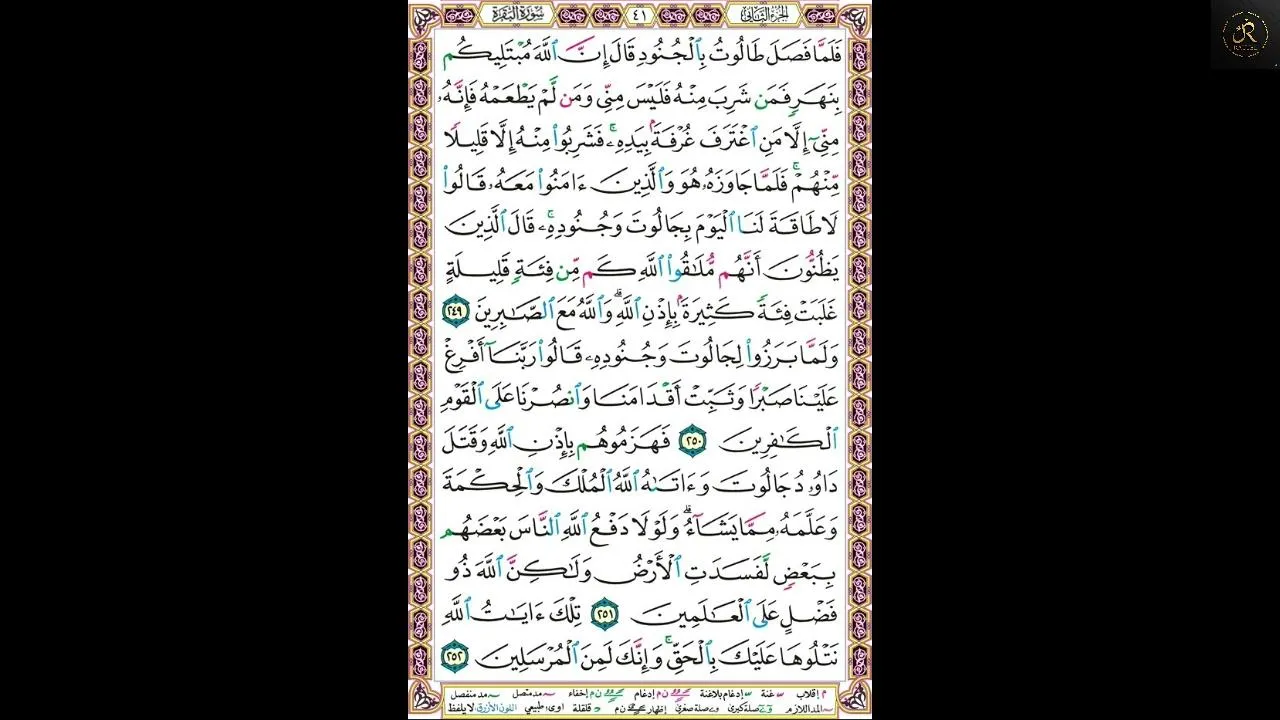 الجزء الثاني ٤١ سورة البقرة
فَلَمَّا فَصَلَ طَالُوتُ بِٱلْجُنُودِ قَالَ إِنَّ ٱللَّهَ مُبْتَلِيكُم
بِنَهَرٍ فَمَن شَرِبَ مِنْهُ فَلَيْسَ مِنِّى وَمَن لَّمْ يَطْعَمْهُ فَإِنَّهُۥ
مِنِّىٓ إِلَّا مَنِ ٱغْتَرَفَ غُرْفَةًۢ بِيَدِهِۦۚ فَشَرِبُوا۟ مِنْهُ إِلَّا قَلِيلًا
مِّنْهُمْۚ فَلَمَّا جَاوَزَهُۥ هُوَ وَٱلَّذِينَ ءَامَنُوا۟ مَعَهُۥ قَالُوا۟
لَا طَاقَةَ لَنَا ٱلْيَوْمَ بِجَالُوتَ وَجُنُودِهِۦۚ قَالَ ٱلَّذِينَ
يَظُنُّونَ أَنَّهُم مُّلَـٰقُوا۟ ٱللَّهِ كَم مِّن فِئَةٍ قَلِيلَةٍ
غَلَبَتْ فِئَةً كَثِيرَةًۢ بِإِذْنِ ٱللَّهِۗ وَٱللَّهُ مَعَ ٱلصَّـٰبِرِينَ ٢٤٩
وَلَمَّا بَرَزُوا۟ لِجَالُوتَ وَجُنُودِهِۦ قَالُوا۟ رَبَّنَآ أَفْرِغْ
عَلَيْنَا صَبْرًا وَثَبِّتْ أَقْدَامَنَا وَٱنصُرْنَا عَلَى ٱلْقَوْمِ
ٱلْكَـٰفِرِينَ ٢٥٠ فَهَزَمُوهُم بِإِذْنِ ٱللَّهِ وَقَتَلَ
دَاوُۥدُ جَالُوتَ وَءَاتَىٰهُ ٱللَّهُ ٱلْمُلْكَ وَٱلْحِكْمَةَ
وَعَلَّمَهُۥ مِمَّا يَشَآءُۗ وَلَوْلَا دَفْعُ ٱللَّهِ ٱلنَّاسَ بَعْضَهُم
بِبَعْضٍ لَّفَسَدَتِ ٱلْأَرْضُ وَلَـٰكِنَّ ٱللَّهَ ذُو
فَضْلٍ عَلَى ٱلْعَـٰلَمِينَ ٢٥١ تِلْكَ ءَايَـٰتُ ٱللَّهِ
نَتْلُوهَا عَلَيْكَ بِٱلْحَقِّۚ وَإِنَّكَ لَمِنَ ٱلْمُرْسَلِينَ ٢٥٢
م إقلاب غنة إدغام بلاغنة ن م إدغام ن م إخفاء مد متصل مد منفصل
المد اللازم صلة كبرى صلة صغرى إظهار ن م قلقلة اوى طبيعي اللون الأزرق لا يلفظ